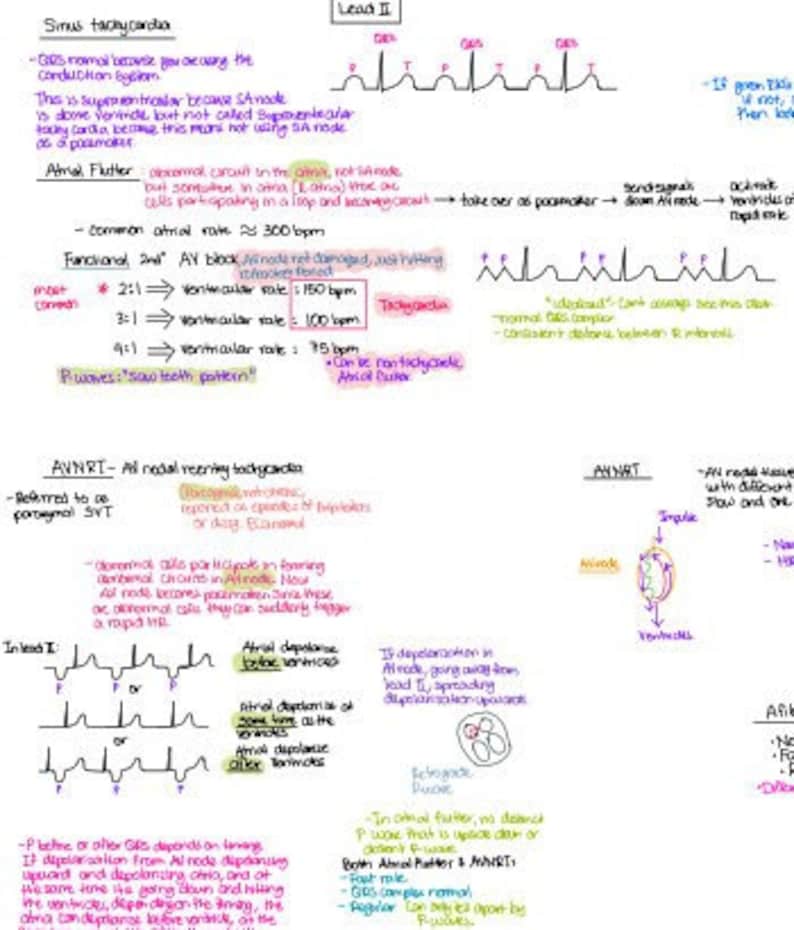 Lead II
Sinus tachycardia
QRS QRS QRS
P T P T P T
- QRS normal because you are using the
conduction system
This is supraventricular because SA node
is above ventricle, but not called supraventricular
tachycardia, because this means not using SA node
as a pacemaker
- If given
if not,
then
Atrial Flutter: abnormal circuit in the atria, not SA node
but somewhere in atria (R atria) there are
cells participating in a loop and circuit → take over as pacemaker → send signals down AV node → activate ventricles at rapid rate
- common atrial rate ≈ 300 bpm
Functional 2nd° AV block, AV node not damaged, just hitting
refractory period
P P P P P P
most common * 2:1 ⇒ ventricular rate: 150 bpm
3:1 ⇒ ventricular rate: 100 bpm
Tachycardia
4:1 ⇒ ventricular rate: 75 bpm
• Can be non tachycardic
Atrial flutter
P waves: "saw tooth pattern"
"idealised": Can't always see this clear
- normal QRS complex
- consistent distance between R intervals
AVNRT - AV nodal reentry tachycardia
- Referred to as
paroxysmal SVT
Paroxysmal, not chronic,
reported as episodes of palpitations
or dizzy.
- abnormal cells participate in forming
abnormal circuits in AV node. Now
AV node becomes pacemaker. Since these
are abnormal cells they can suddenly trigger
a rapid HR.
AVNRT
- AV nodal tissue
with different
slow and one
Impulse
AV node
Ventricles
In lead II:
P P P
or
Atrial depolarise
before ventricles
Atrial depolarise at
same time as the
ventricles
or
Atrial depolarise
after ventricles
P P P
If depolarization in
AV node, going away from
lead II, spreading
depolarization upwards
Retrograde
P wave
Afib
- In atrial flutter, no distinct
P wave that is upside down or
distinct P-wave
Both Atrial Flutter & AVNRT:
- Fast rate
- QRS complex normal
- Regular Can only tell apart by
P waves.
- P before or after QRS depends on timing.
If depolarization from AV node depolarizing
upward and depolarizing atria, and at
the same time its going down and hitting
the ventricles, depending on the timing, the
atria can depolarise before ventricle, at the